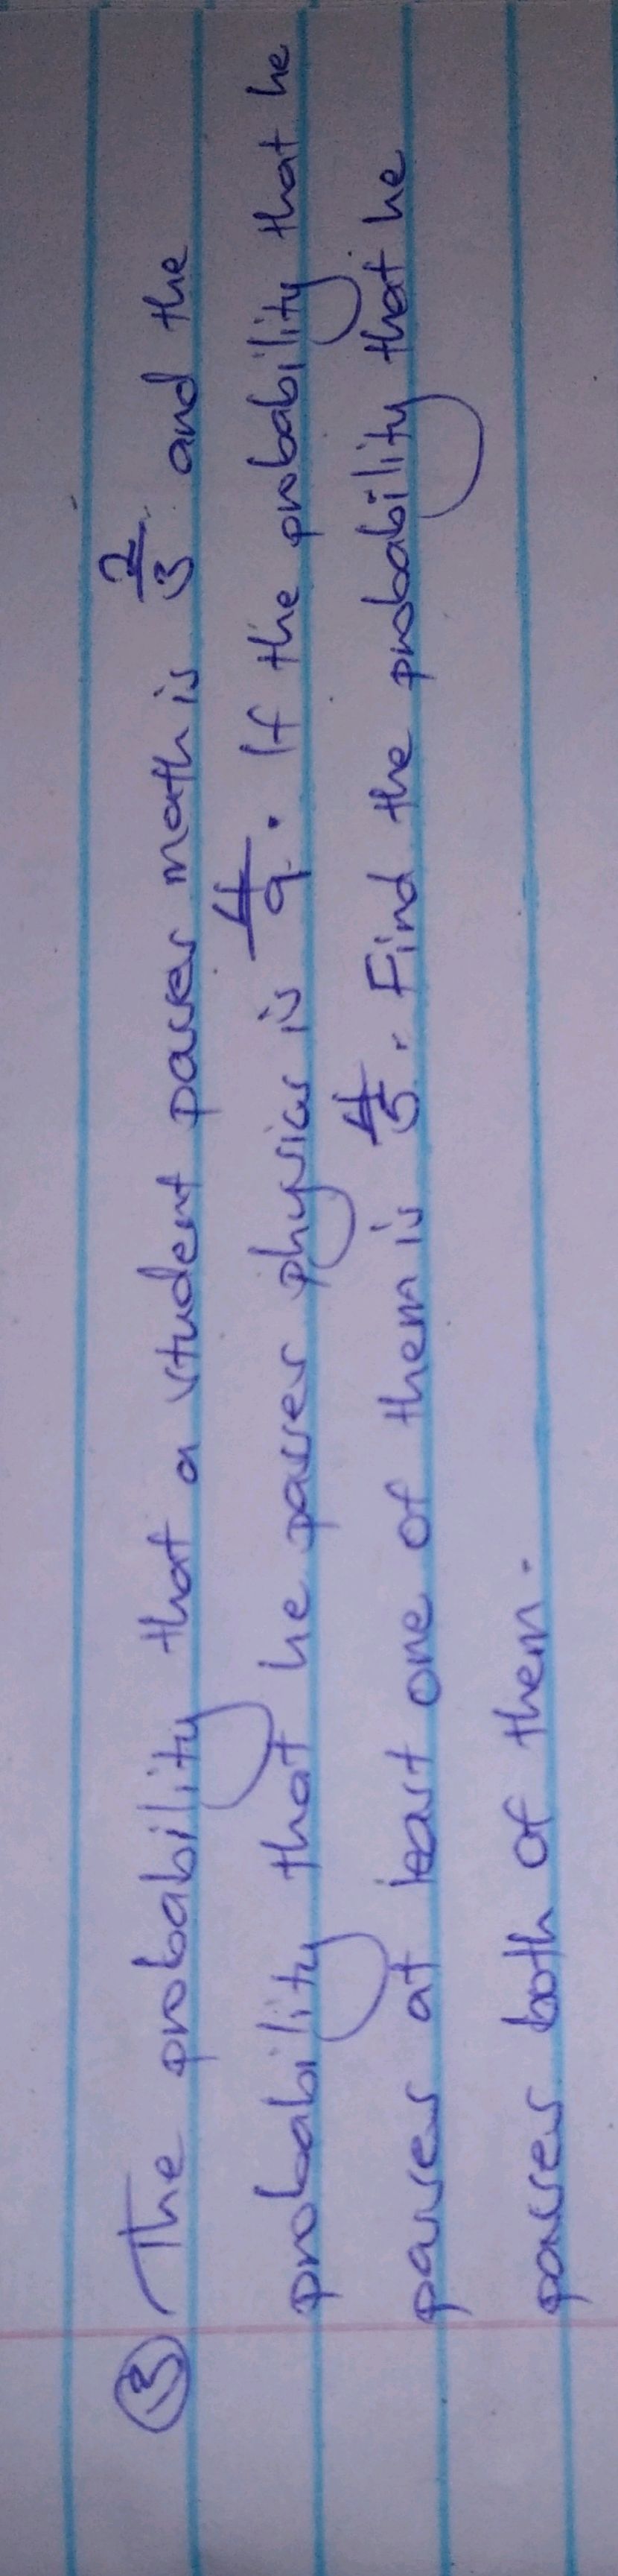 ③ The probability that a student passes math is 2/3 and the
probability that he passes physics is 4/9. If the probability that he
passes at least one of them is 4/5. Find the probability that he
passes both of them.